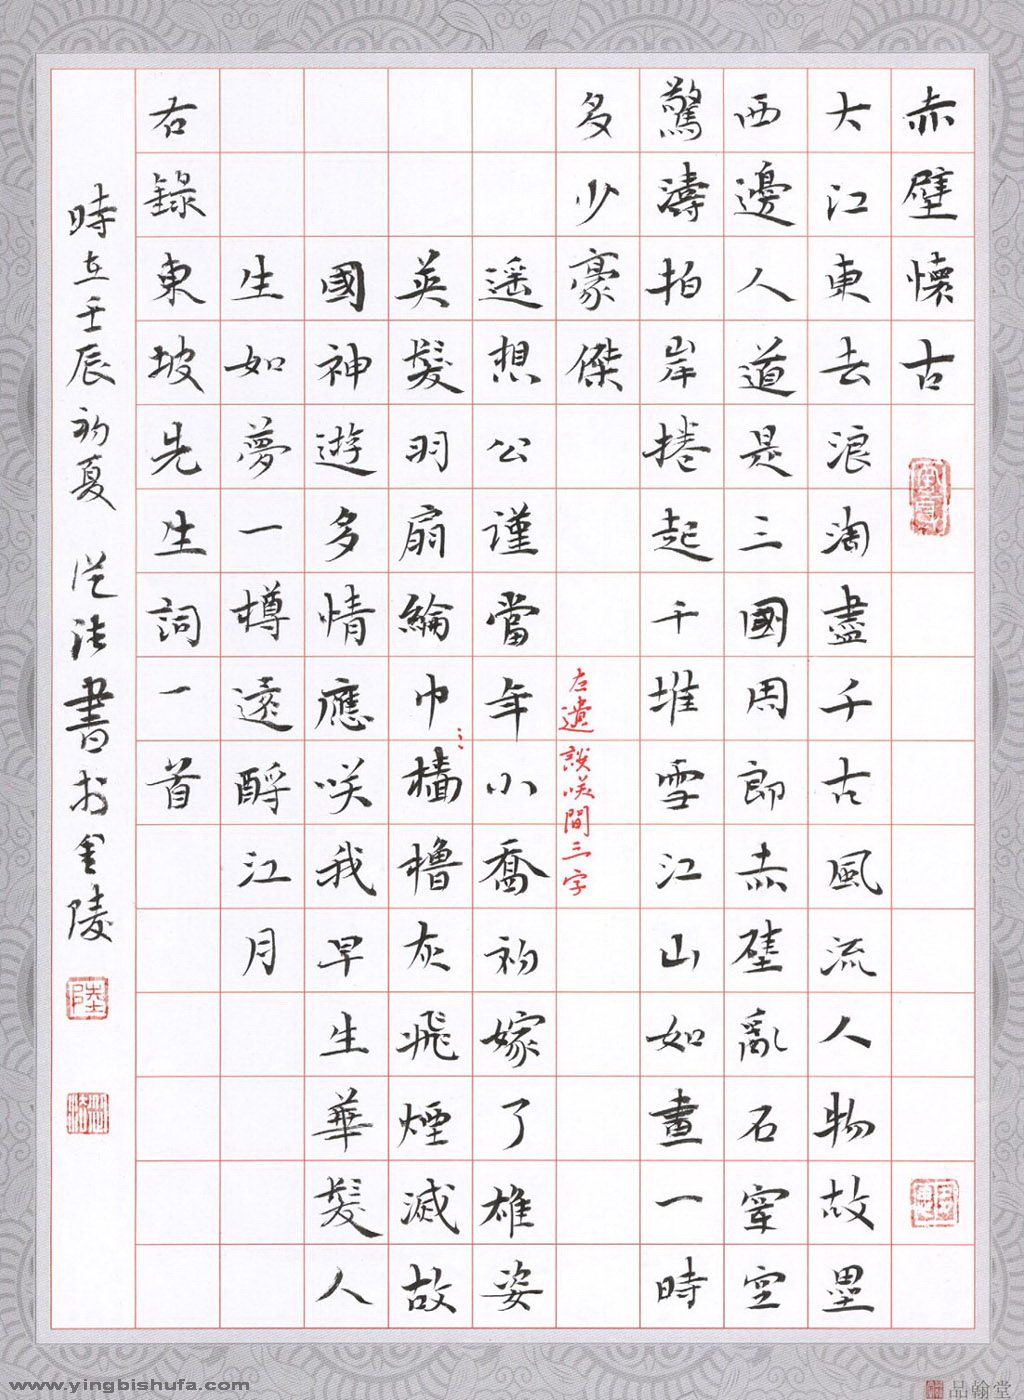 赤壁懷古
大江東去浪淘盡千古風流人物故壘
西邊人道是三國周郎赤壁亂石穿空
驚濤拍岸捲起千堆雪江山如畫一時
多少豪傑
左遺談咲間三字
遥想公謹當年小喬初嫁了雄姿
英髮羽扇綸巾檣櫓灰飛煙滅故
國神遊多情應咲我早生華髮人
生如夢一樽遠酹江月
右錄東坡先生詞一首
時在壬辰初夏 從法書於金陵
陸
www.yingbishufa.com
品翰堂